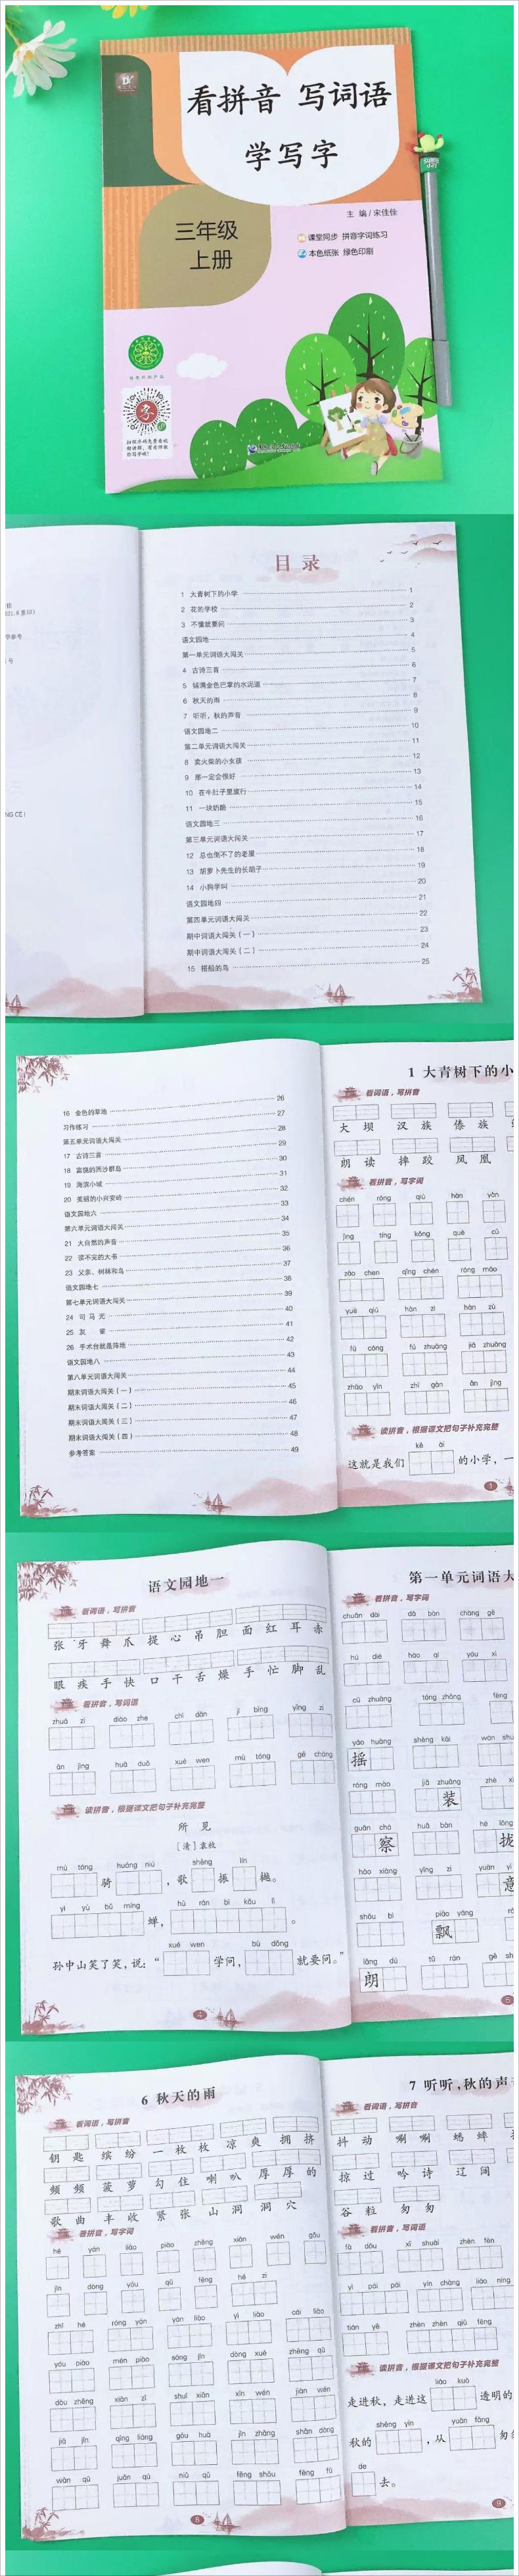 看拼音 写词语
学写字
三年级
上册
主 编/宋佳佳
课堂同步 拼音字词练习
本色纸张 绿色印刷
目 录
1 大青树下的小学 1
2 花的学校 2
3 不懂就要问 3
语文园地一 4
第一单元词语大闯关 5
4 古诗三首 6
5 铺满金色巴掌的水泥道 7
6 秋天的雨 8
7 听听，秋的声音 9
语文园地二 10
第二单元词语大闯关 11
8 卖火柴的小女孩 12
9 那一定会很好 13
10 在牛肚子里旅行 14
11 一块奶酪 15
语文园地三 16
第三单元词语大闯关 17
12 总也倒不了的老屋 18
13 胡萝卜先生的长胡子 19
14 小狗学叫 20
语文园地四 21
第四单元词语大闯关 22
期中词语大闯关（一） 23
期中词语大闯关（二） 24
15 搭船的鸟 25
16 金色的草地 26
习作练习 27
第五单元词语大闯关 28
17 古诗三首 29
18 富饶的西沙群岛 30
19 海滨小城 31
20 美丽的小兴安岭 32
语文园地六 33
第六单元词语大闯关 34
21 大自然的声音 35
22 读不完的大书 36
23 父亲、树林和鸟 37
语文园地七 38
第七单元词语大闯关 39
24 司 马 光 40
25 灰 雀 41
26 手术台就是阵地 42
语文园地八 43
第八单元词语大闯关 44
期末词语大闯关（一） 45
期末词语大闯关（二） 46
期末词语大闯关（三） 47
期末词语大闯关（四） 48
参考答案 49
1 大青树下的小
看词语，写拼音
大 坝 汉 族 傣 族
朗 读 摔 跤 凤 凰
看拼音，写字词
chén róng qiú hàn yàn
jìng tíng kǒng què cū
zǎo chen qīng chén róng mào
yuè qiú hàn zì hàn zú
fú cóng fú zhuāng jiǎ zhuāng
zhāo yǐn zhī gàn ān jìng
读拼音，根据课文把句子补充完整
kě ài
这就是我们 的小学，一
1
语文园地一
看词语，写拼音
张 牙 舞 爪 提 心 吊 胆 面 红 耳 赤
眼 疾 手 快 口 干 舌 燥 手 忙 脚 乱
看拼音，写词语
zhuā zi diào zhe chì dǎn jí bìng yǐng zi
ān jìng huā duǒ xué wen mù tóng gē chàng
读拼音，根据课文把句子补充完整
所 见
［清］袁枚
mù tóng huáng niú shēng lín
骑 ，歌 振 樾。
yì yù bǔ míng hū rán bì kǒu lì
蝉， 。
xué wen bù dǒng
孙中山笑了笑，说：“ 学问， 就要问。”
4
第一单元词语大
看拼音，写字词
chuān dài dǎ bàn chàng gē
hú dié hào qí yóu xì
cū zhuàng tóng zhōng
yáo huàng shèng kāi
摇
róng mào jiǎ zhuāng
装
guān chá huā bàn
察 拔
hǎo xiàng yǐng zi
意
shǒu bì piāo yáng
飘
lǎng dú tū rán
朗
5
6 秋天的雨
看词语，写拼音
钥 匙 缤 纷 一 枚 枚 凉 爽 拥 挤
频 频 菠 萝 勾 住 喇 叭 厚 厚 的
歌 曲 丰 收 紧 张 山 洞 洞 穴
看拼音，写字词
hé yán liào piào zhēng xiān wén gōu
jǐn dòng yóu qū fēng hé zi
zhǐ hé róng yán yán liào yì liào cái liào
yóu piào mén piào sōng jǐn dòng xué zhēng qǔ
dòu zhēng xiān zǐ shuǐ xiān xīn wén jiàn wén
jiā jǐn qīng liáng gōu huà jǐn zhāng shān dòng
wān qū juǎn qū niǔ qū fēng shōu fēng fù
8
7 听听，秋的声
看词语，写拼音
抖 动 唰 唰 蟋 蟀
掠 过 吟 诗 辽 阔
谷 粒 匆 匆
看拼音，写词语
yí pái pái yín chàng liáo níng
tián yě zhèn zhèn qiū fēng
读拼音，根据课文把句子补充完整
liáo kuò
走进秋，走进这 透明的
shēng yīn yuǎn fāng
秋的 ，从
de
去。
9